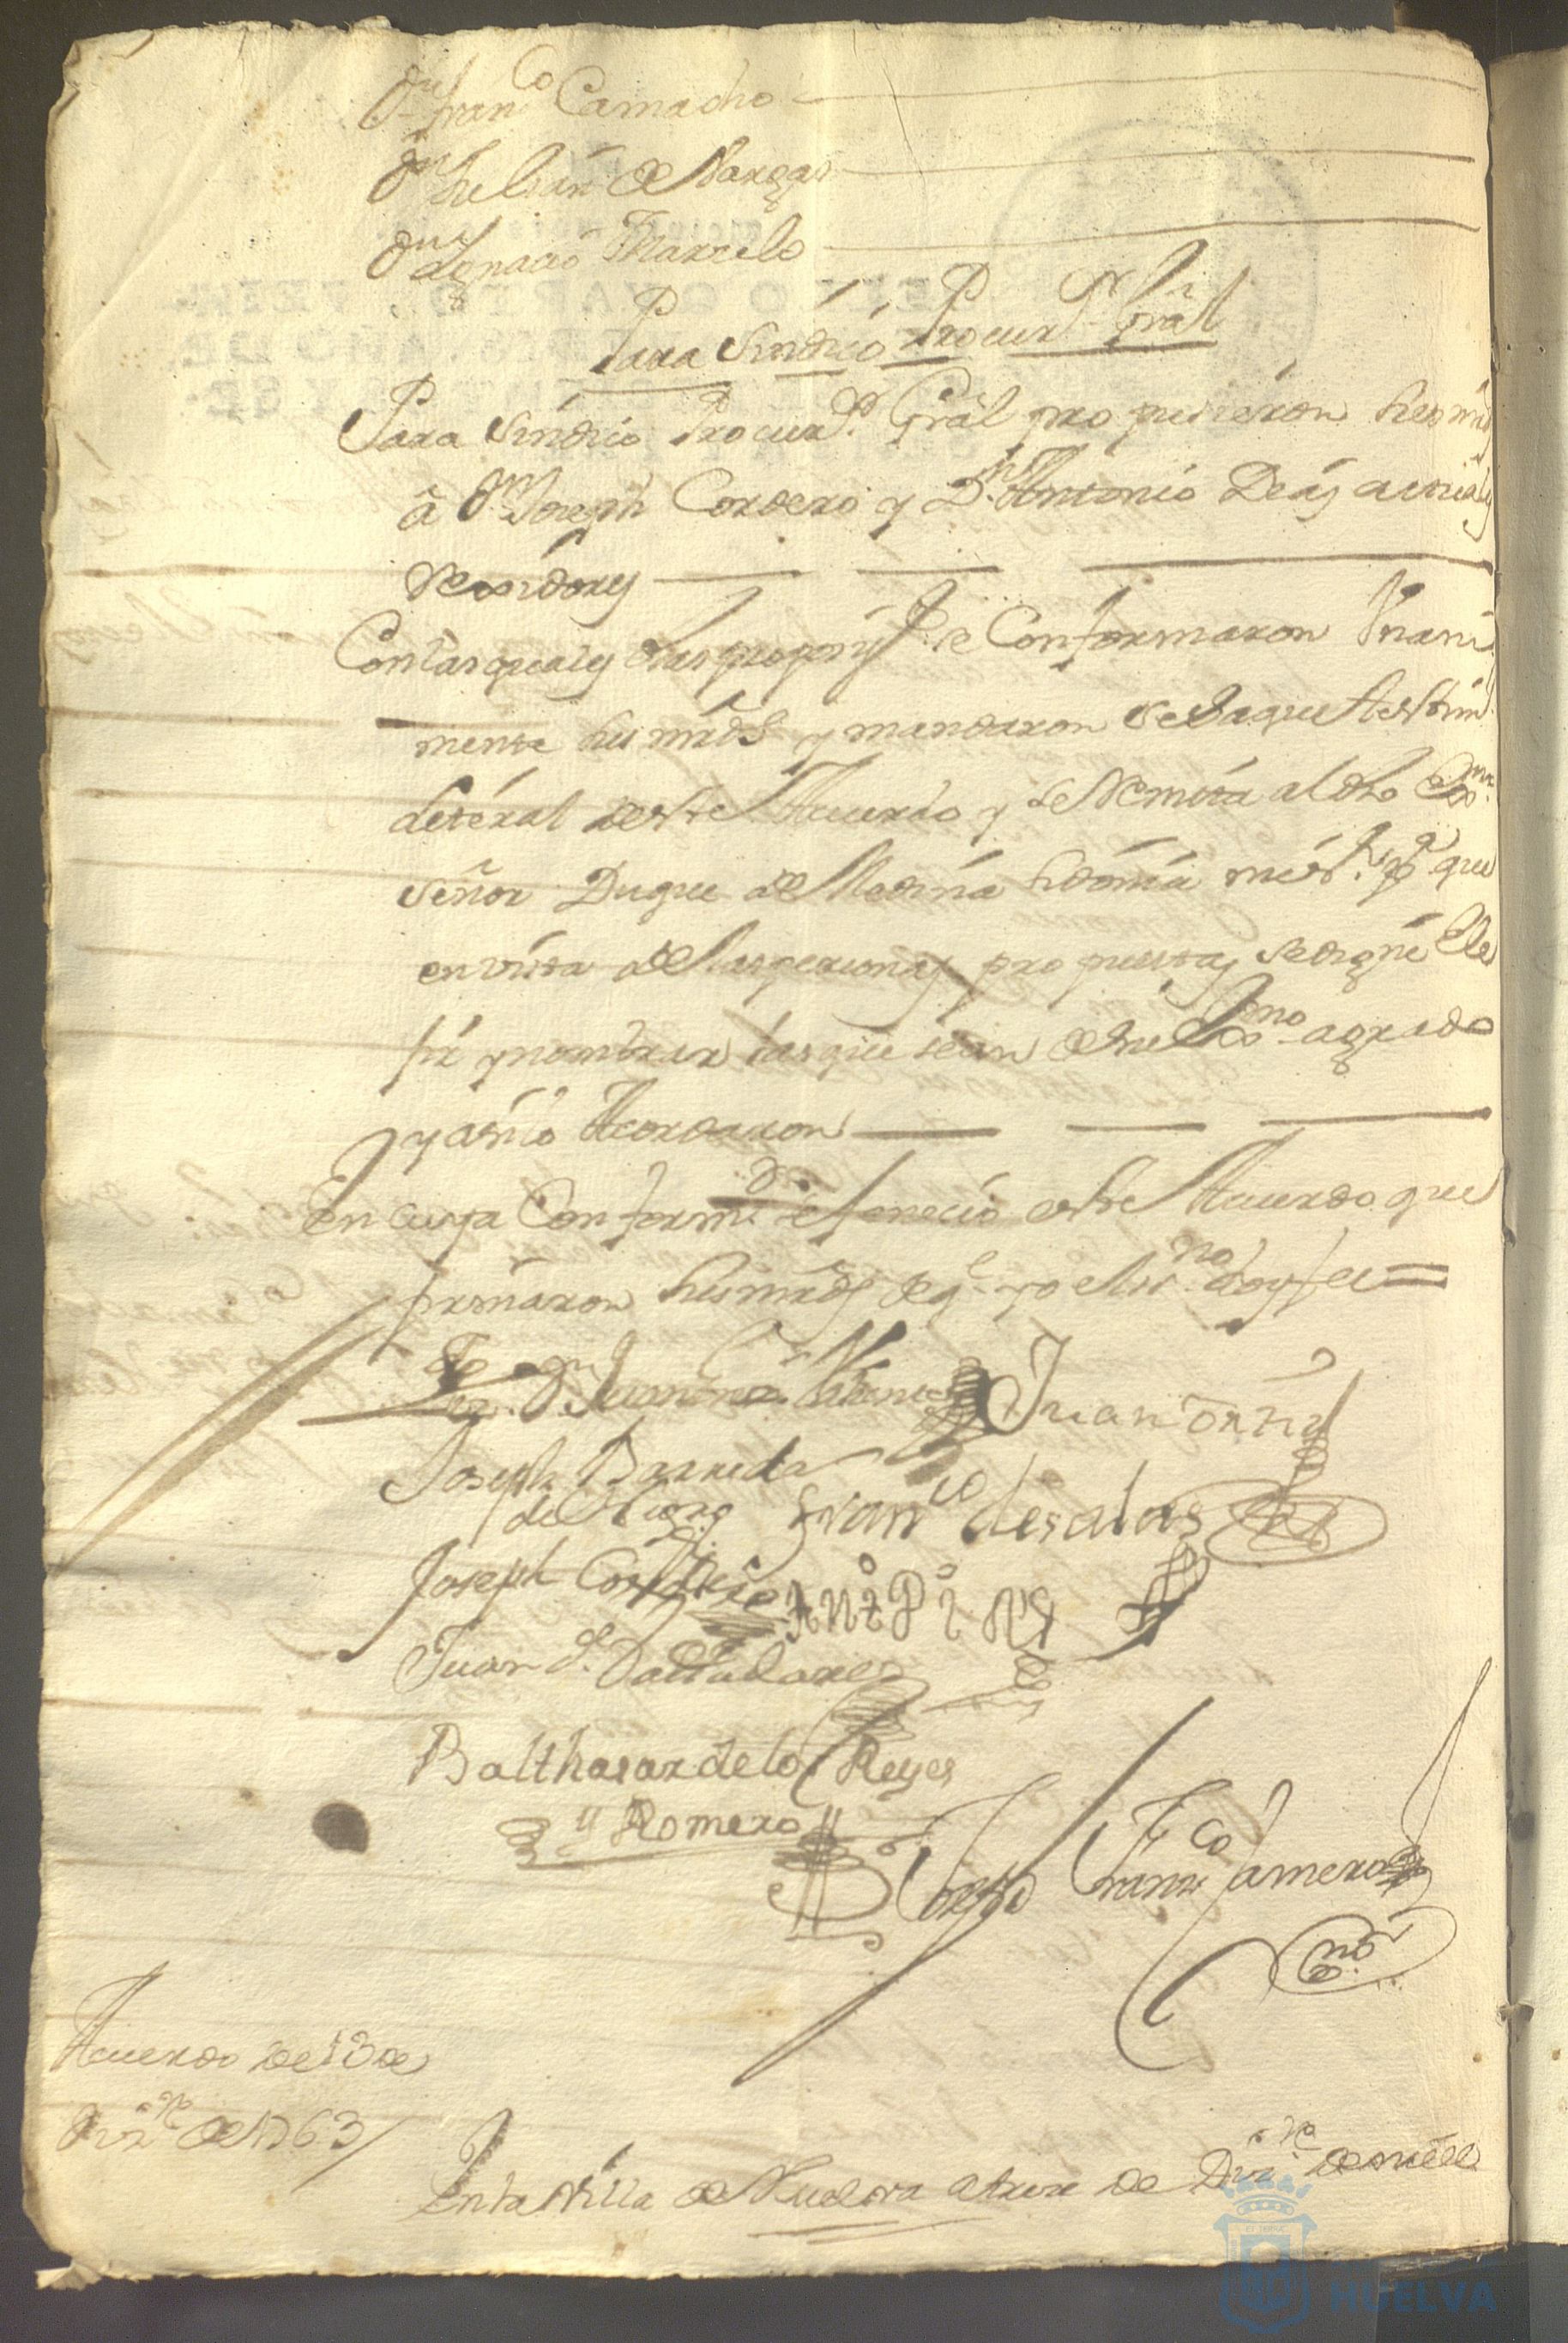 Dn Franco Camacho
Dn Julian de Vargas
Dn Ygnacio Marcelo
Para Sindico Procurr Gral
Para Sindico Procurr Gral propusieron sus mrds
â Dn Joseph Cordero y Dn Antonio Deas actuales
Rexidores
Con las quales dhas propons se Conformaron Unani
mente sus mrds y mandaron se saque testimo
literal deste Acuerdo y se Remita al dho Exmo
señor Duque de Medina Sidonia mi sr pa que
en vista de las personas propuestas se digne Ele
jir y nombrar las que sean de su Exmo agrado
y asi lo Acordaron
En cuya Conformd se fenecio este Acuerdo que
firmaron sus mrds de qe yo el ssno doy fee =
Juan Ortiz
Joseph Barreda
Franco de salas
Joseph Cordero
Juan Valladares
Balthasar de los Reyes
y Romero
Franco
Acuerdo de 13 de
Dizre de 1763
En la Villa de Huelva a trece de Dizre de mill
HUELVA